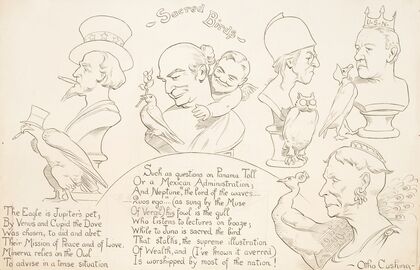 ~ Sacred Birds ~
U.S.N.
Such as questions on Panama Toll
Or a Mexican Administration;
And Neptune, the lord of the waves—
Quos ego— (as sung by the Muse
Of Vergil) his fowl is the gull
Who listens to lectures on booze;
While to Juno is sacred the bird
That stalks, the supreme illustration
Of Wealth, and (I've known it averred)
Is worshipped by most of the nation!
The Eagle is Jupiter's pet;
By Venus and Cupid the Dove
Was chosen, to aid and abet
Their Mission of Peace and of Love.
Minerva relies on the Owl
To advise in a tense situation
— Otho Cushing.